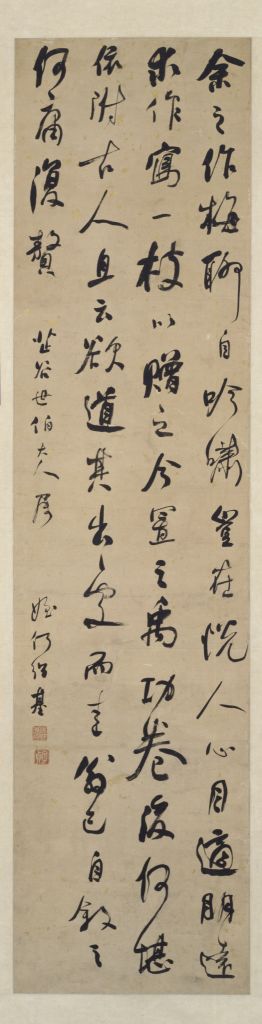 余之作梅聊自吟嘯豈在悅人心目適明遠
來作寫一枝以贈之今置之禹功卷後何堪
依附古人且云欲道其出處而圭翁已自敘之
何庸復贅
芷谷世伯大人屬
姪何紹基